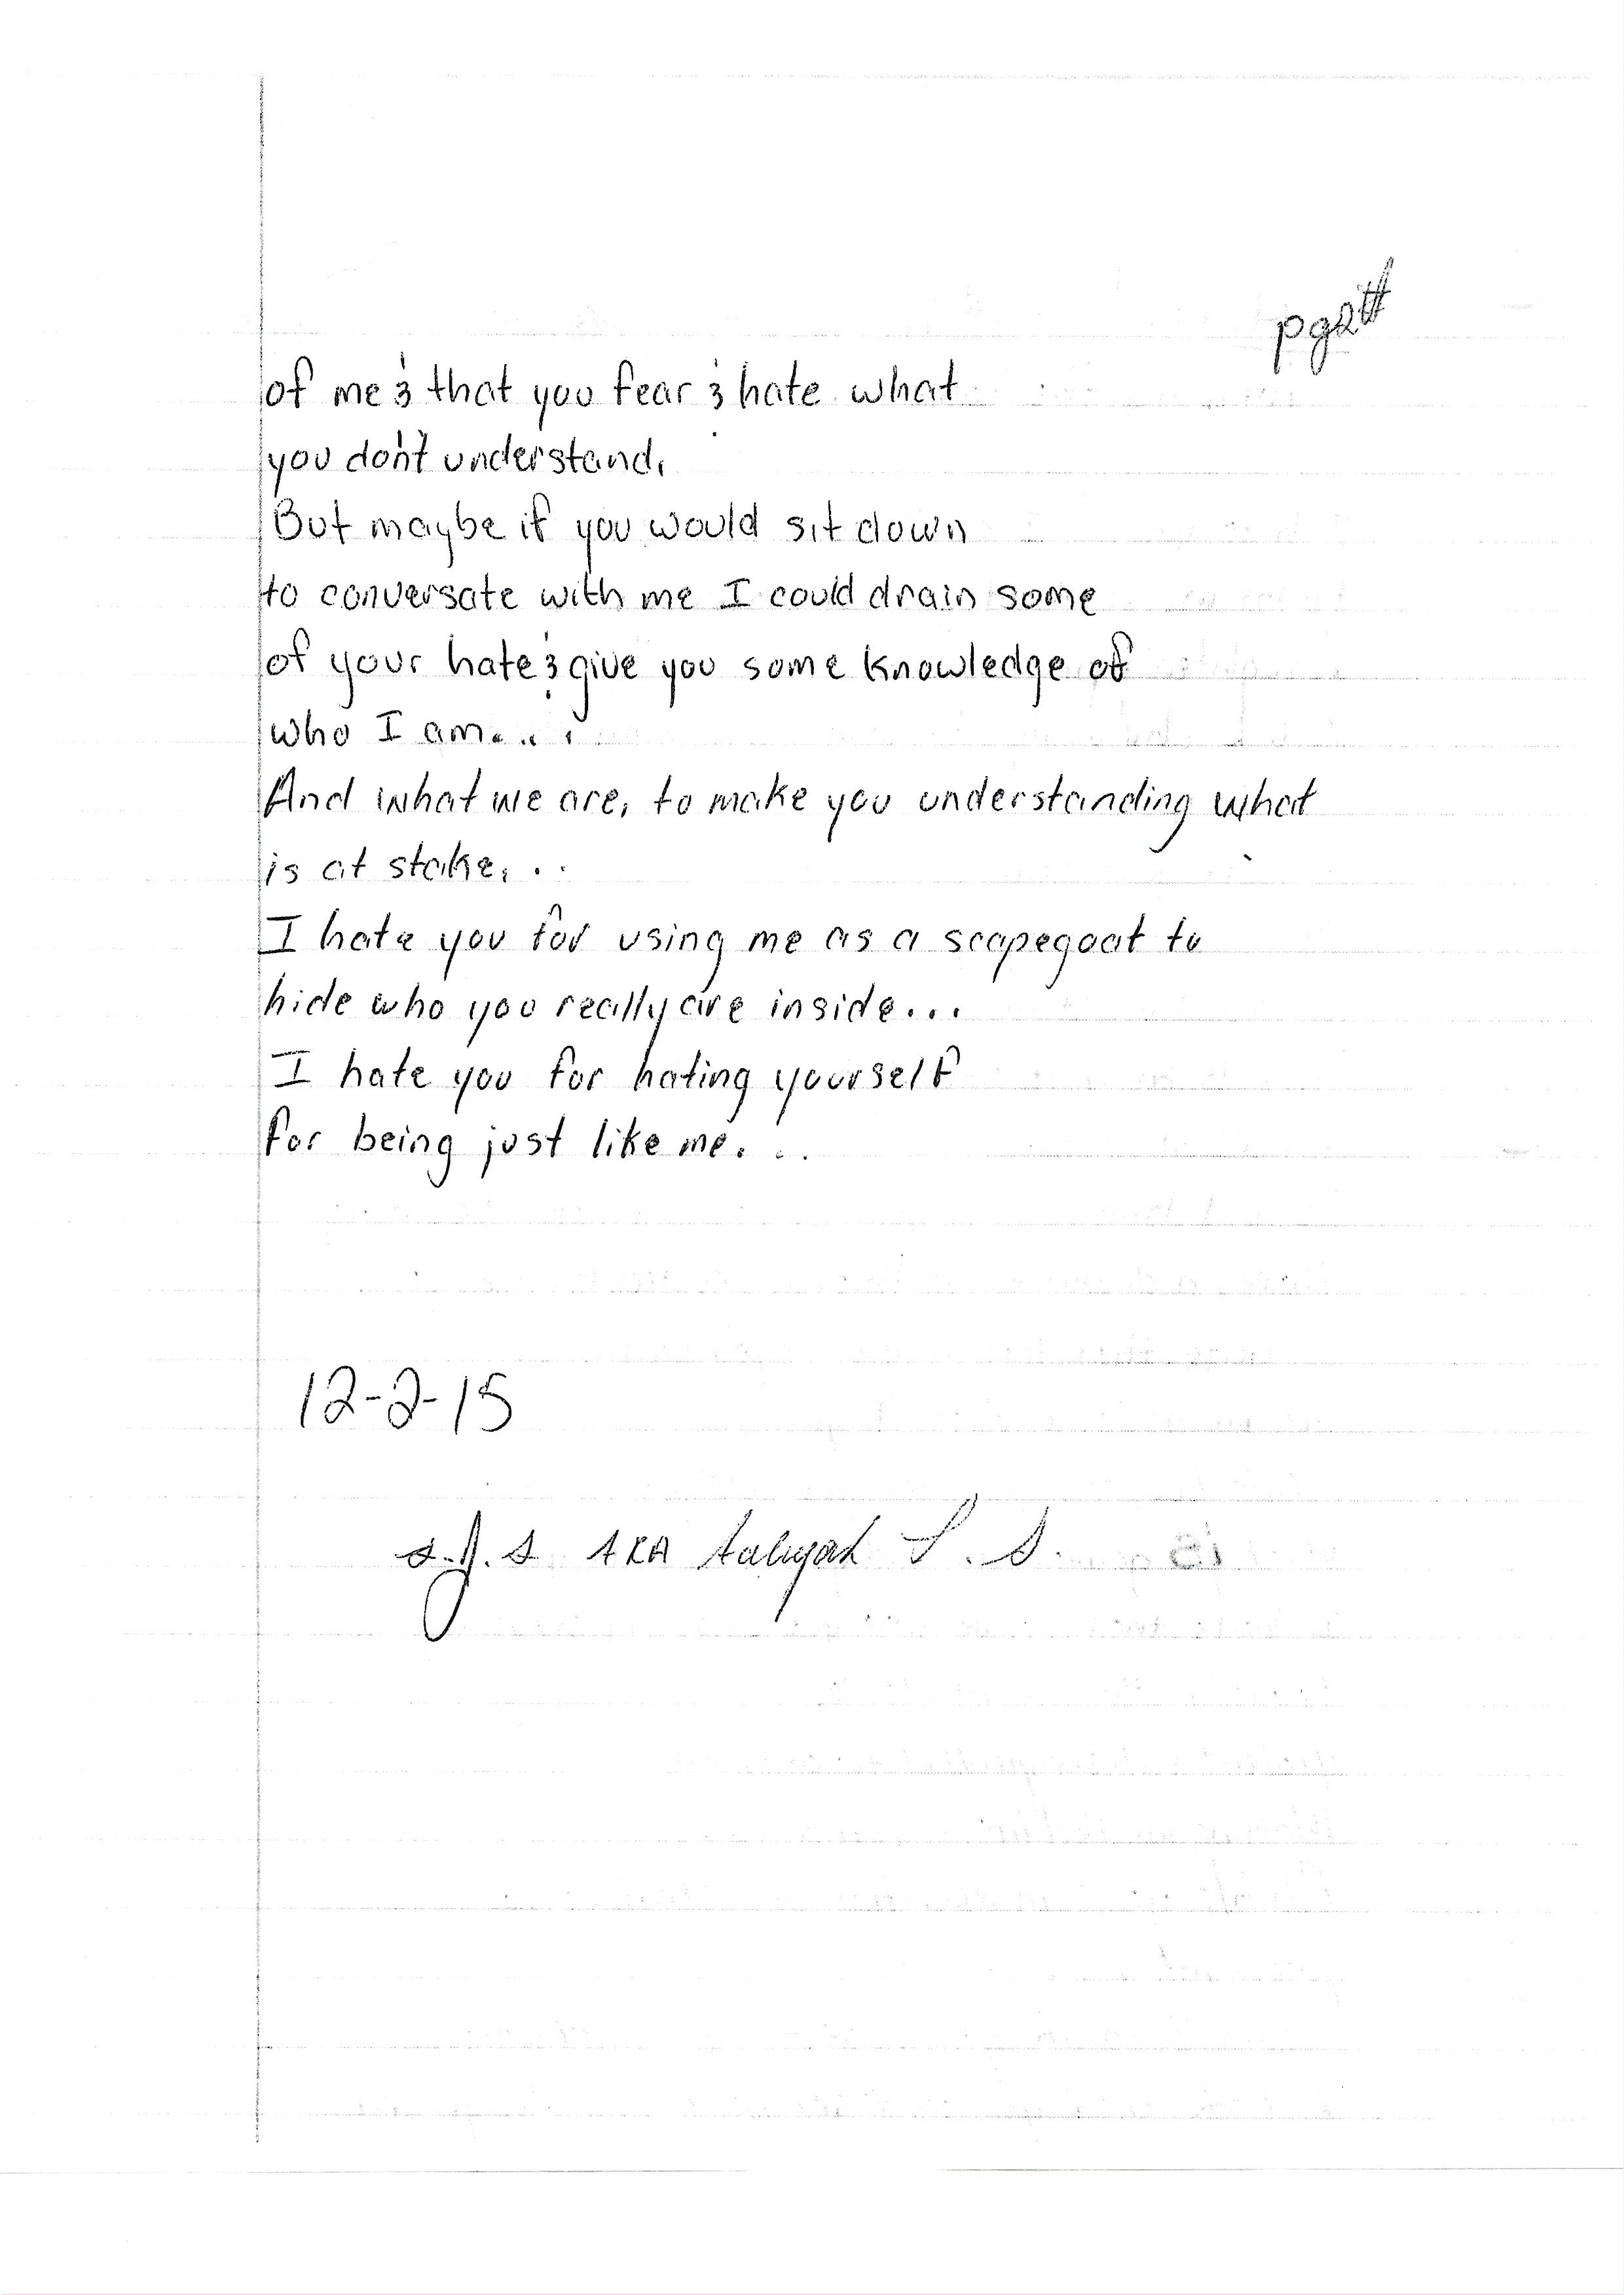 pg2#
of me & that you fear & hate what
you don't understand.
But maybe if you would sit down
to conversate with me I could drain some
of your hate & give you some knowledge of
who I am....
And what we are, to make you understanding what
is at stake...
I hate you for using me as a scapegoat to
hide who you really are inside...
I hate you for hating yourself
for being just like me...
12-2-15
S.J.S AKA Aaliyah S.S.